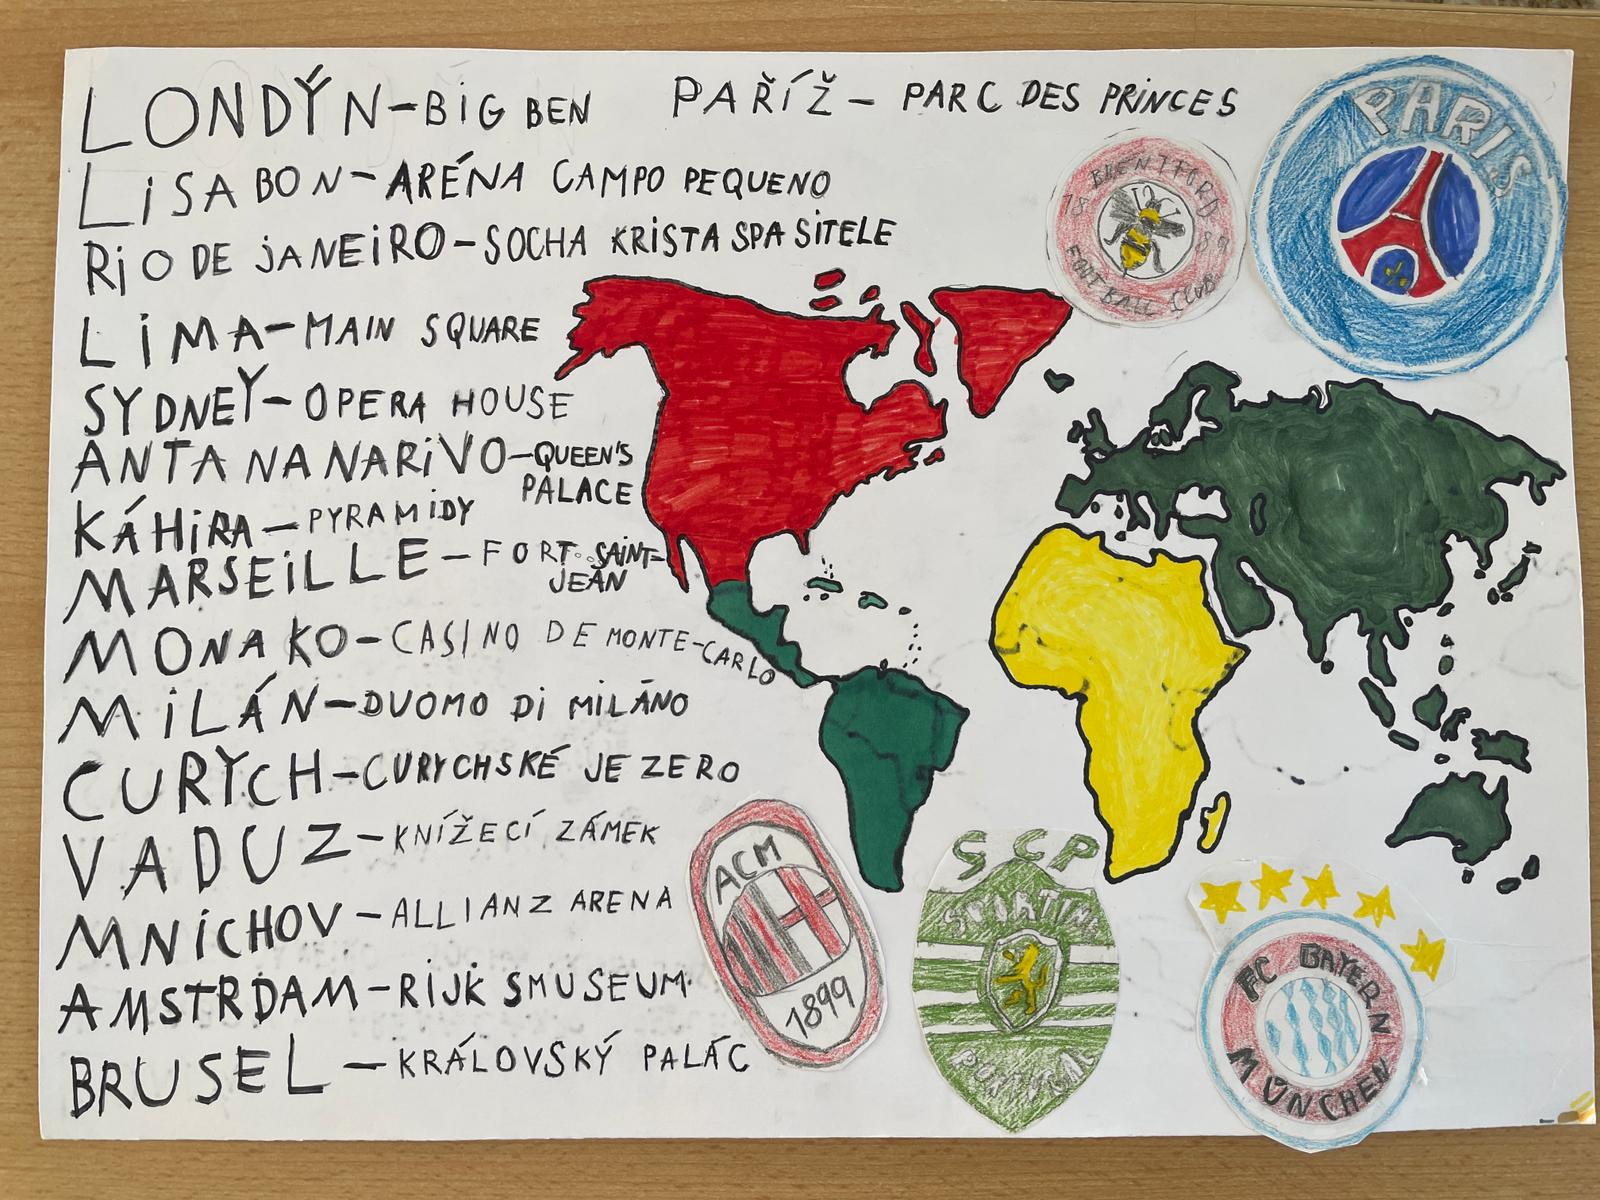 LONDÝN-BIG BEN
PAŘÍŽ - PARC DES PRINCES
LISABON-ARÉNA CAMPO PEQUENO
RIO DE JANEIRO-SOCHA KRISTA SPASITELE
LIMA-MAIN SQUARE
SYDNEY-OPERA HOUSE
ANTANANARIVO-QUEEN'S
PALACE
KÁHIRA-PYRAMIDY
MARSEILLE-FORT SAINT-
JEAN
MONAKO-CASINO DE MONTE-CARLO
MILÁN-DUOMO DI MILÁNO
CURYCH-CURYCHSKÉ JEZERO
VADUZ-KNÍŽECÍ ZÁMEK
MNICHOV-ALLIANZ ARENA
AMSTRDAM-RIJKSMUSEUM
BRUSEL-KRÁLOVSKÝ PALÁC
PARIS
BRENTFORD
18 89
FOOTBALL CLUB
ACM
1899
SCP
SPORTING
PORTUGAL
FC BAYERN
MÜNCHEN